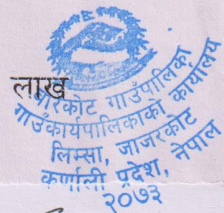 लाख
बारेकोट गाउँपालिका
गाउँकार्यपालिकाको कार्यालय
लिम्सा, जाजरकोट
कर्णाली प्रदेश, नेपाल
२०७३